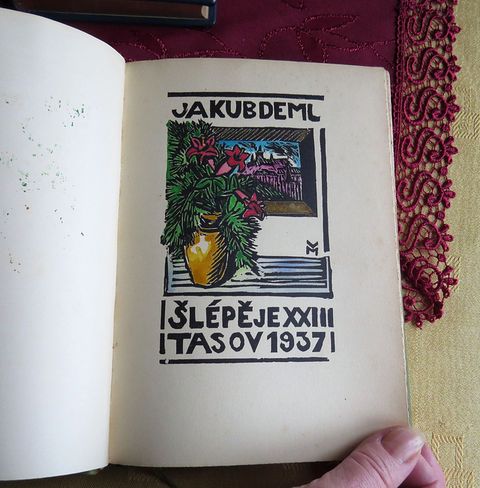 JAKUB DEML
VM
ŠLÉPĚJE XXIII
TASOV 1937